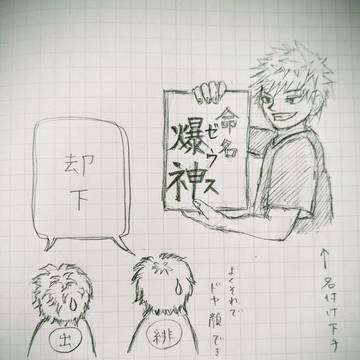 命名
ゼウス
爆神
却下
よくそれで
ドヤ顔でき
出
緋
↑名付け下手